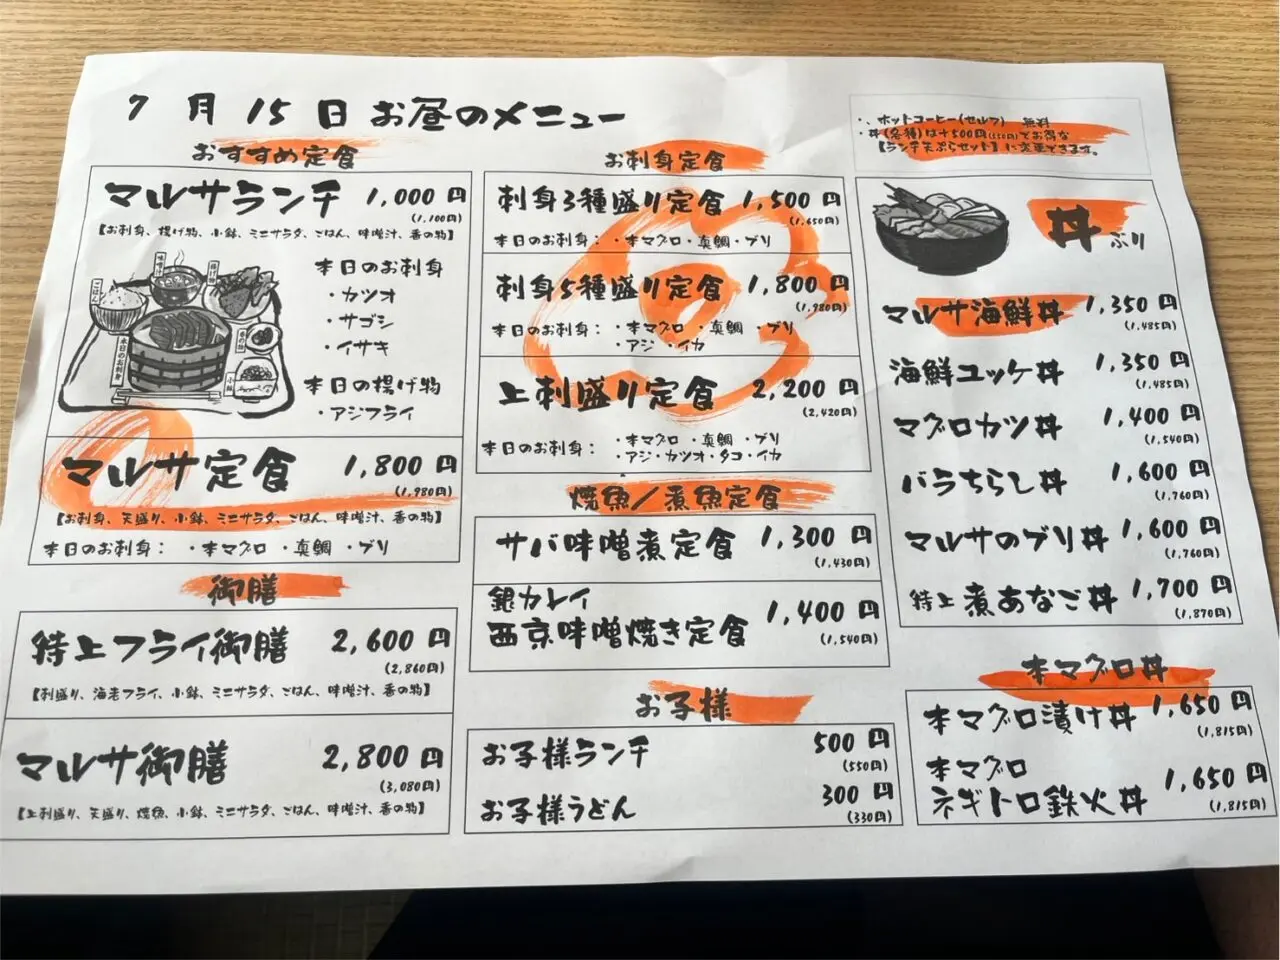 7月15日 お昼のメニュー
おすすめ定食
マルサランチ 1,000円
(1,100円)
【お刺身、揚げ物、小鉢、ミニサラダ、ごはん、味噌汁、香の物】
本日のお刺身
・カツオ
・サゴシ
・イサキ
本日の揚げ物
・アジフライ
ごはん
味噌汁
揚げ物
香の物
小鉢
本日のお刺身
マルサ定食 1,800円
(1,980円)
【お刺身、天盛り、小鉢、ミニサラダ、ごはん、味噌汁、香の物】
本日のお刺身： ・本マグロ ・真鯛 ・ブリ
御膳
特上フライ御膳 2,600円
(2,860円)
【刺盛り、海老フライ、小鉢、ミニサラダ、ごはん、味噌汁、香の物】
マルサ御膳 2,800円
(3,080円)
【上刺盛り、天盛り、焼魚、小鉢、ミニサラダ、ごはん、味噌汁、香の物】
お刺身定食
刺身3種盛り定食 1,500円
(1,650円)
本日のお刺身： ・本マグロ・真鯛・ブリ
刺身5種盛り定食 1,800円
(1,980円)
本日のお刺身： ・本マグロ ・真鯛 ・ブリ
・アジ ・イカ
上刺盛り定食 2,200円
(2,420円)
本日のお刺身： ・本マグロ ・真鯛 ・ブリ
・アジ・カツオ・タコ・イカ
焼魚/煮魚定食
サバ味噌煮定食 1,300円
(1,430円)
銀カレイ
西京味噌焼き定食 1,400円
(1,540円)
お子様
お子様ランチ 500円
(550円)
お子様うどん 300円
(330円)
・、ホットコーヒー(セルフ) 無料
・丼(各種)は+500円(550円)でお得な
【ランチ天ぷらセット】に変更できます。
丼ぶり
マルサ海鮮丼 1,350円
(1,485円)
海鮮ユッケ丼 1,350円
(1,485円)
マグロカツ丼 1,400円
(1,540円)
バラちらし丼 1,600円
(1,760円)
マルサのブリ丼 1,600円
(1,760円)
特上煮あなご丼 1,700円
(1,870円)
本マグロ丼
本マグロ漬け丼 1,650円
(1,815円)
本マグロ
ネギトロ鉄火丼 1,650円
(1,815円)